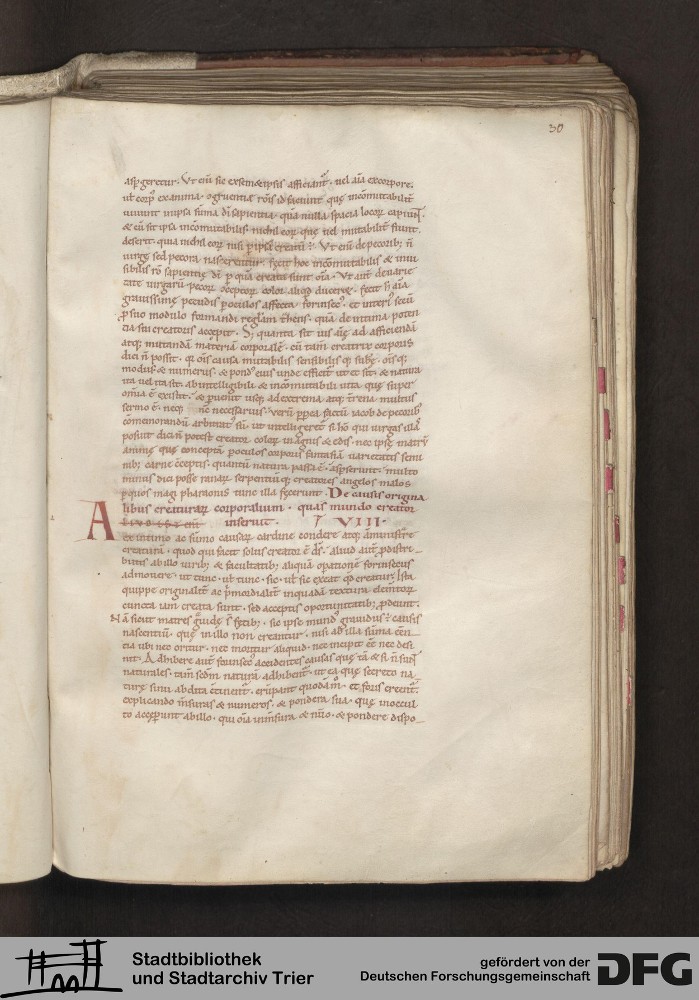 30
aspergeretur. Ut eni sic ex semetipsis afficiant. vel aia ex corpore.
ut corp ex anima.
uivunt in ipsa suma di sapientia. qua nulla spacia locor capiunt.
& cu sit ipsa incomutabilis. nichil eor que uel mutabilit sunt.
deserit. quia nichil eor nisi p ipsa creatu e. Ut eni de pecorib; n
uirge sed pecora nascerentur. fecit hoc incomutabilis & inui
sibilis ro sapientie di p qua creata sunt oia. Ut aut de uarie
tate uirgaru pecor conceptor color aliqd duceret. fecit h aia
grauissime pecudis p oculos affecta forinsec. et interi secu
p suo modulo formandi regula trhens. qua de intima poten
tia sui creatoris accepit. Sz quanta sit uis aie ad afficienda
atq; mutanda materia corporale. cu tam creatrix corporis
dici n possit. qr ois causa mutabilis sensibilis q; subst. ois q;
modus & numerus & pond eius unde efficit ut et sit. & natura
ita uel ita sit. ab intelligibili & incomutabili uita que super
omia e existit. & puenit usq; ad extrema atq; trena. multus
sermo e. neq; nc necessarius. Veru pprea factu iacob de pecorib
comemorandu arbitrat su. ut intelligeret si ho qui uirgas illa
posuit dici n potest creator color in agnis & edis. nec ipse matru
anime que concepta p oculos corporis fantasia uarietatis semi
nib; carne cceptis. quantu natura passa e. asperserunt. multo
minus dici posse ranar serpentiu q; creatores angelos malos
p quos magi pharaonis tunc illa fecerunt. De causis origina
libus creaturar corporalium. quas mundo creator
inseruit. VIII.
A
ex intimo ac sumo causar cardine condere atq; aministrare
creatura. quod qui facit solus creator e ds. aliud aut p distri
butis ab illo uirib; & facultatib; aliqua opratione forinsecus
admouere. ut tunc. ul tunc. sic. ul sic exeat qd creatur. Ista
quippe originalit ac pmordialit in quada textura elemtor
cuncta iam creata sunt. sed acceptis oportunitatib; pdeunt.
Na sicut matres gruide st fetib; sic ipse mund grauidus e causis
nascentiu. que in illo non creantur. nisi ab illa suma essen
tia ubi nec oritur. nec moritur aliquid. nec incipit ee nec desi
nit. Adhibere aut forinsec accidentes causas que ta & si n sunt
naturales. tam sedm natura adhibent. ut ea que secreto na
ture sinu abdita continent. erupant quoda m. et foris creent.
explicando msuras & numeros. & pondera sua. que in occul
to acceperunt ab illo. qui oia in msura & nuo. & pondere dispo
Stadtbibliothek
und Stadtarchiv Trier
gefördert von der
Deutschen Forschungsgemeinschaft
DFG